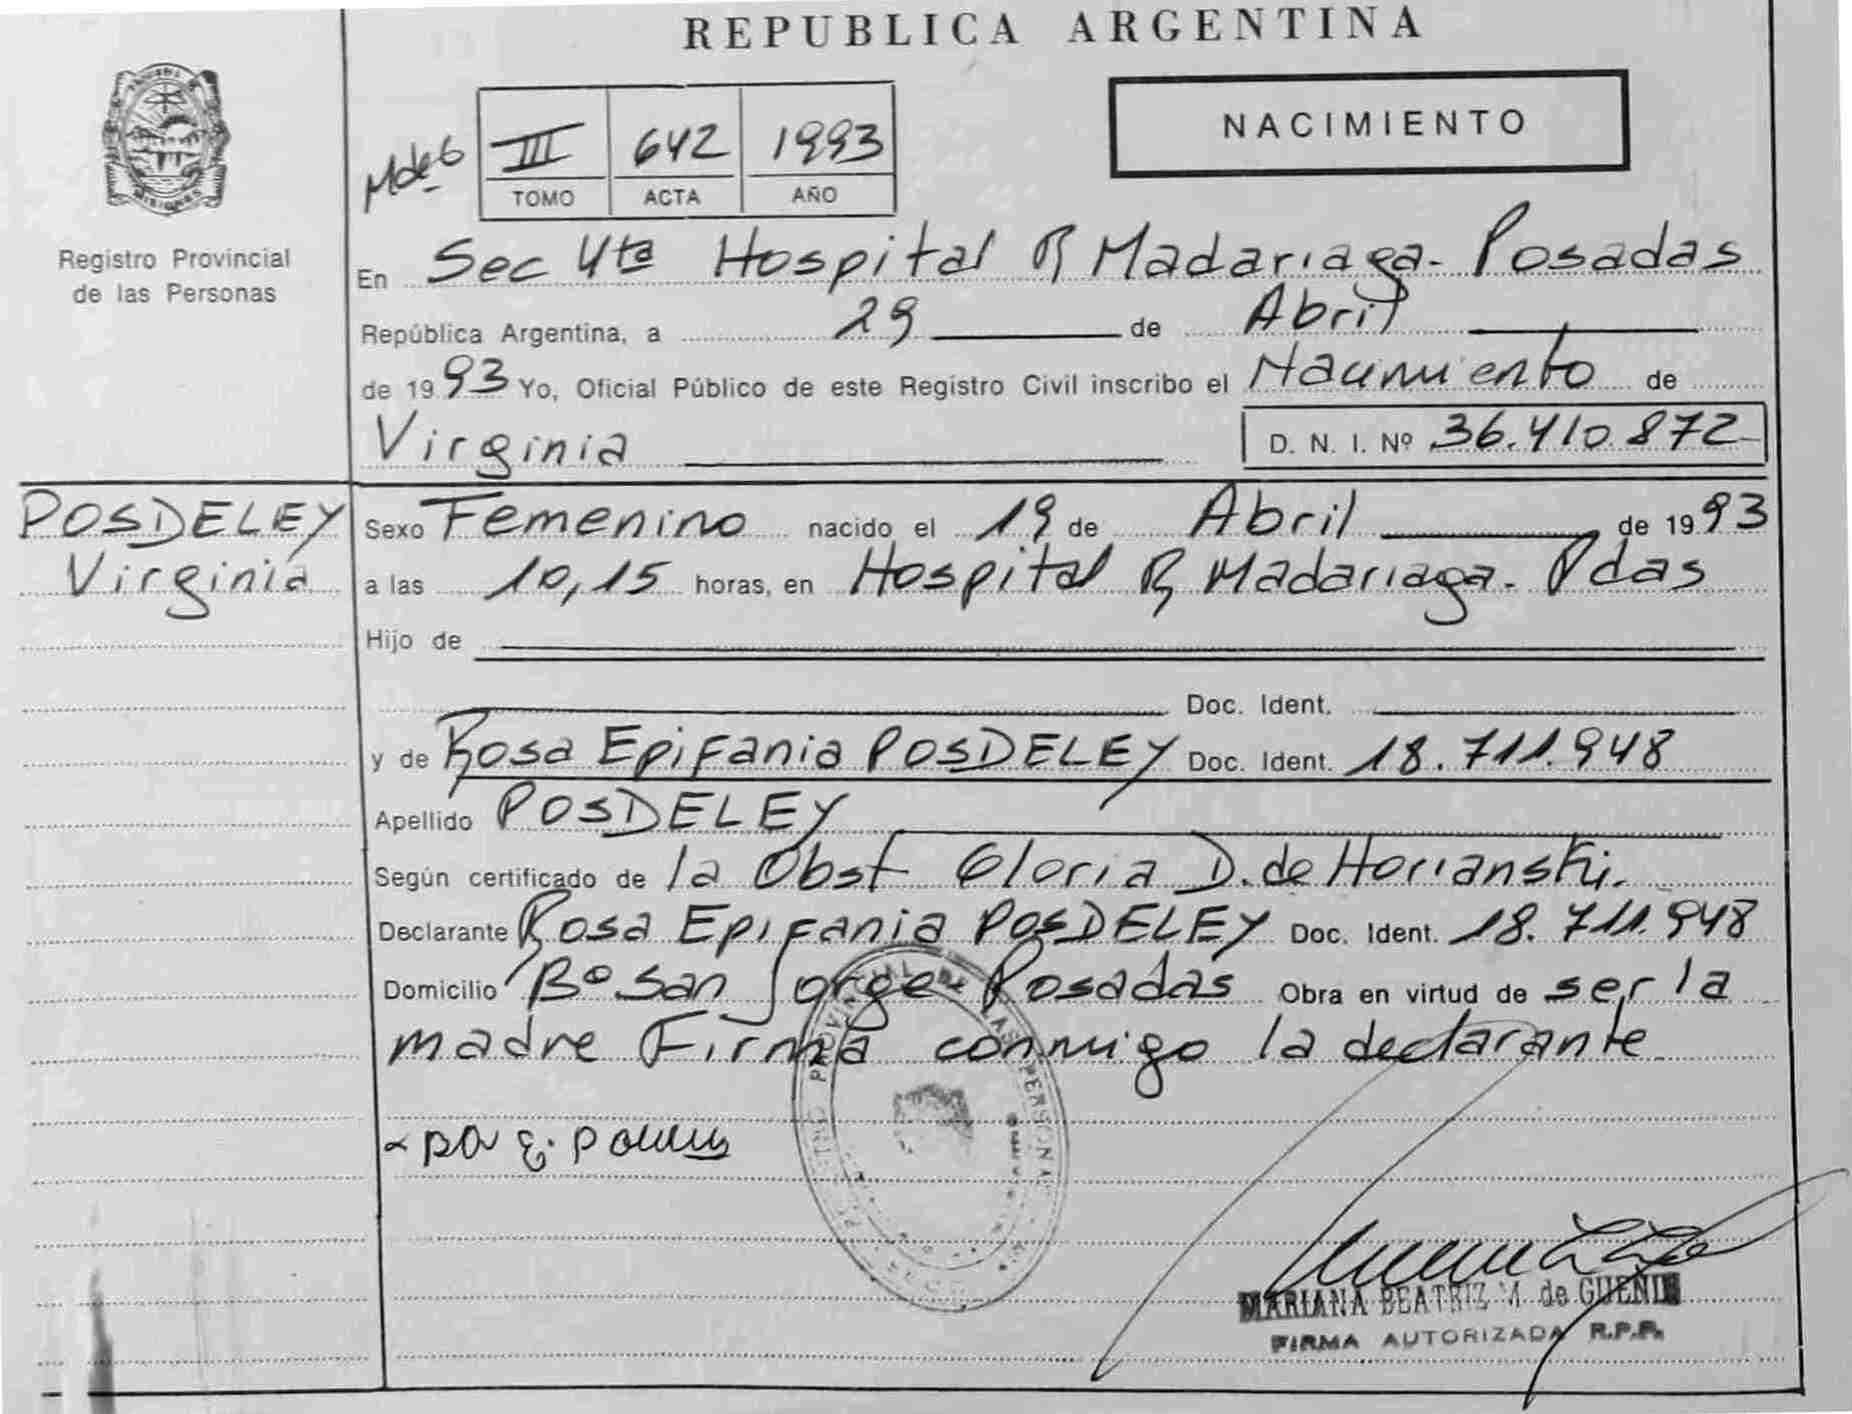 REPUBLICA ARGENTINA
NACIMIENTO
III 642 1993
TOMO ACTA AÑO
Registro Provincial
de las Personas
En Sec 4ta Hospital R Madariaga - Posadas
República Argentina, a 29 de Abril
de 1993 Yo, Oficial Público de este Registro Civil inscribo el Nacimiento de
Virginia D. N. I. Nº 36.410.872
POSDELEY
Virginia
Sexo Femenino nacido el 19 de Abril de 1993
a las 10,15 horas, en Hospital R Madariaga - Pdas
Hijo de
Doc. Ident.
y de Rosa Epifania POSDELEY Doc. Ident. 18.711.948
Apellido POSDELEY
Según certificado de la Obst Gloria D. de Horianski.
Declarante Rosa Epifania POSDELEY Doc. Ident. 18.711.948
Domicilio Bº San Jorge Posadas Obra en virtud de ser la
madre Firma conmigo la declarante
MARIANA BEATRIZ M. de GUENIN
FIRMA AUTORIZADA R.P.P.